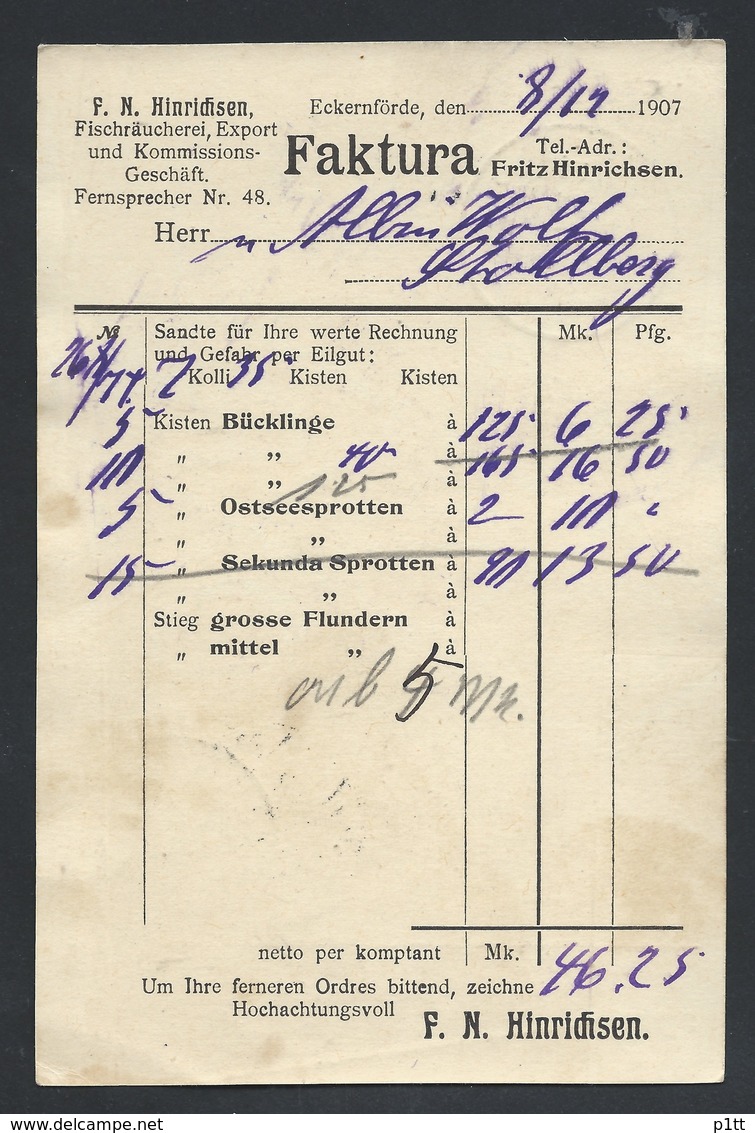 F. N. Hinrichsen,
Fischräucherei, Export
und Kommissions-
Geschäft.
Fernsprecher Nr. 48.
Eckernförde, den 8/12 1907
Faktura
Tel.-Adr.:
Fritz Hinrichsen.
Herr Albin Wolf
Stollberg
№ Sandte für Ihre werte Rechnung Mk. Pfg.
und Gefahr per Eilgut:
7 Kolli 35 Kisten Kisten
5 Kisten Bücklinge à 125 6 25
10 „ „ 40 à 165 16 50
„ „ 125 à
5 „ Ostseesprotten à 2 10 „
„ „ à
15 „ Sekunda Sprotten à 90 13 50
„ „ à
Stieg grosse Flundern à
„ mittel „ à
5 Mk.
netto per komptant Mk. 46.25
Um Ihre ferneren Ordres bittend, zeichne
Hochachtungsvoll
F. N. Hinrichsen.
p1tt